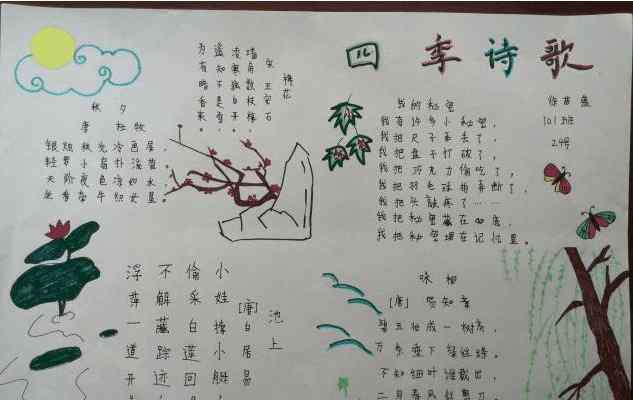 四季诗歌
徐苗鑫
101班
24号
秋夕
唐 杜牧
银烛秋光冷画屏，
轻罗小扇扑流萤。
天阶夜色凉如水，
坐看牵牛织女星。
梅花
宋 王安石
墙角数枝梅，
凌寒独自开。
遥知不是雪，
为有暗香来。
我的秘密
我有许多小秘密，
我把尺子弄丢了，
我把盘子打破了，
我把巧克力偷吃了，
我把羽毛球拍弄断了，
我把头敲疼了……
我把秘密藏在心底，
我把秘密埋在记忆里。
池上
[唐] 白居易
小娃撑小艇
偷采白莲回
不解藏踪迹
浮萍一道开
咏柳
[唐] 贺知章
碧玉妆成一树高，
万条垂下绿丝绦。
不知细叶谁裁出，
二月春风似剪刀